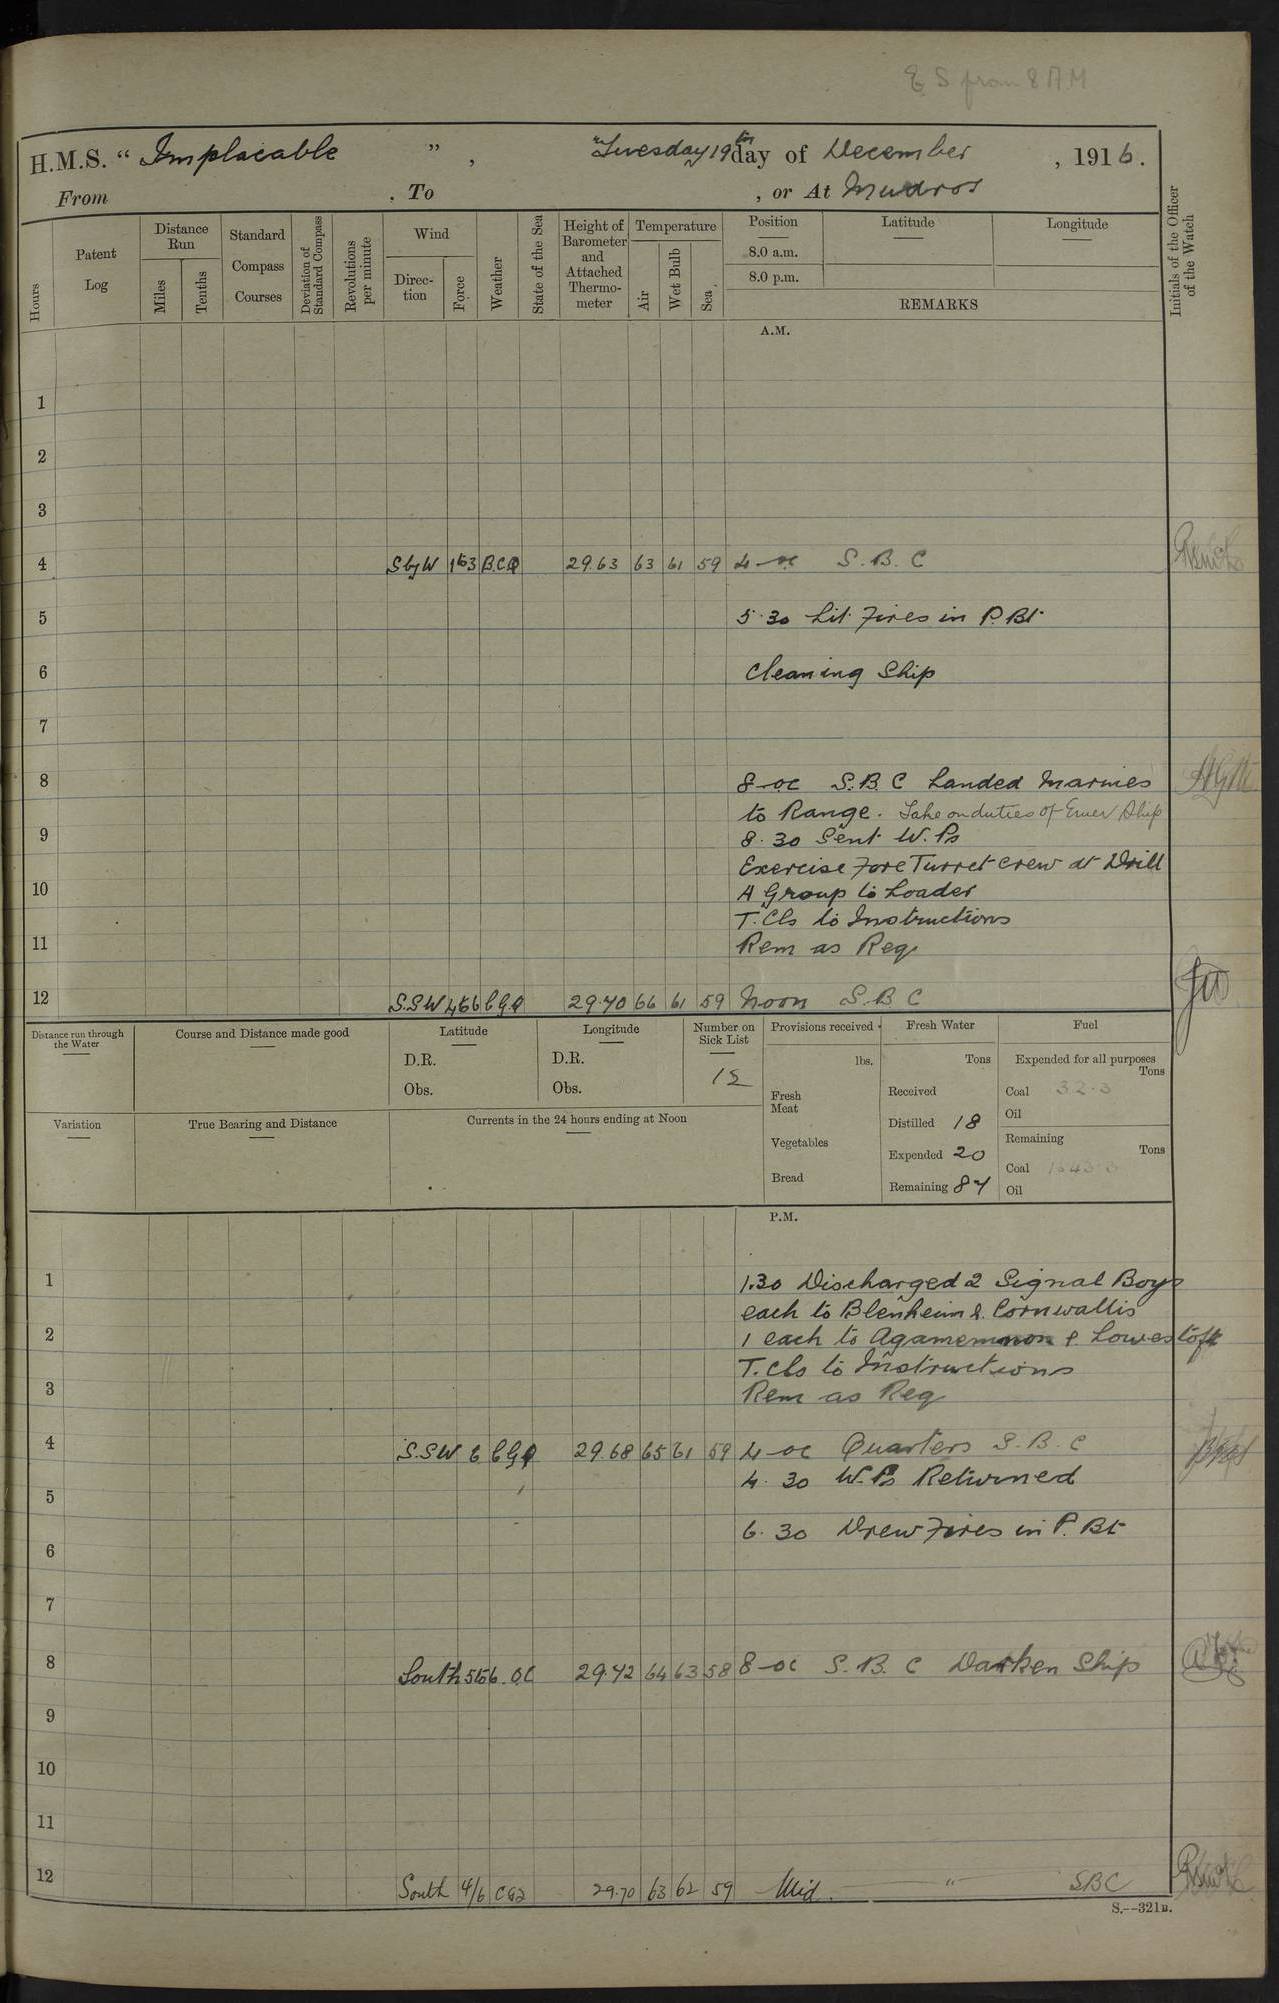 E S from 8 AM
H.M.S. “ Implacable ” , Tuesday 19th day of December , 1916.
From . To , or At Mudros
Hours
Patent Log
Distance Run
Miles
Tenths
Standard Compass Courses
Deviation of Standard Compass
Revolutions per minute
Wind
Direction
Force
Weather
State of the Sea
Height of Barometer and Attached Thermometer
Temperature
Air
Wet Bulb
Sea
Position
8.0 a.m.
8.0 p.m.
Latitude
Longitude
REMARKS
Initials of the Officer of the Watch
A.M.
1
2
3
4 S by W 1 to 3 B.C.Q 29.63 63 61 59 4-oc S.B.C
5 5.30 Lit Fires in P. Bt
6 Cleaning Ship
7
8 8-oc S.B.C Landed Marines
to Range. Take on duties of Emer Ship
9 8.30 Sent W.Ps
Exercise Fore Turret crew at Drill
10 A Group to Loader
T. Cls to Instructions
11 Rem as Req
12 S.S.W 4 to 6 C.G.Q 29.70 66 61 59 Noon S.B.C
Distance run through the Water
Course and Distance made good
Latitude
D.R.
Obs.
Longitude
D.R.
Obs.
Number on Sick List
12
Provisions received
lbs.
Fresh Meat
Vegetables
Bread
Fresh Water
Tons
Received
Distilled 18
Expended 20
Remaining 87
Fuel
Expended for all purposes
Tons
Coal 32.3
Oil
Remaining
Tons
Coal 1643.3
Oil
Variation
True Bearing and Distance
Currents in the 24 hours ending at Noon
P.M.
1 1.30 Discharged 2 Signal Boys
each to Blenheim & Cornwallis
2 1 each to Agamemnon & Lowestoft
T. Cls to Instructions
3 Rem as Req
4 S.S.W 6 C.G.Q 29.68 65 61 59 4-oc Quarters S.B.C
4.30 W.Ps Returned
5
6.30 Drew Fires in P. Bt
6
7
8 South 5 to 6 O.C 29.72 64 63 58 8-oc S.B.C Darken Ship
9
10
11
12 South 4/6 C G Q 29.70 63 62 59 Mid " SBC
S.--321B.